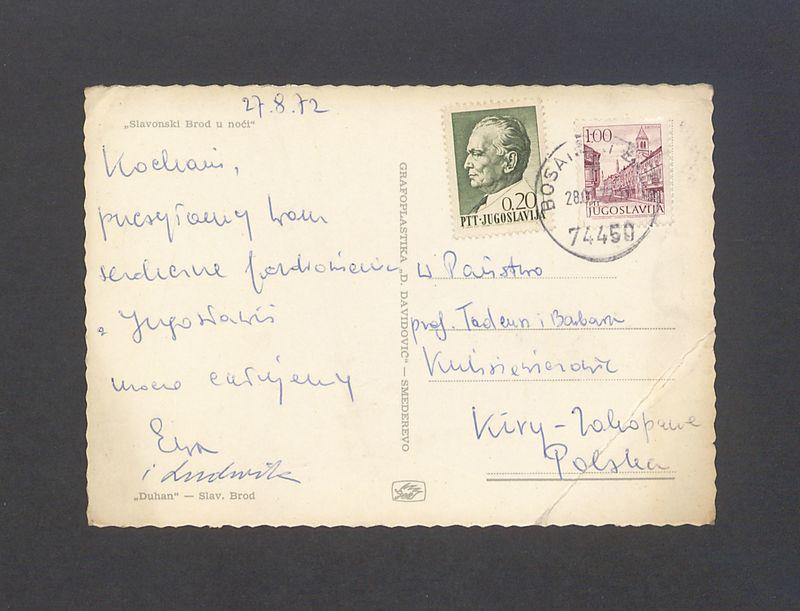 27.8.72
„Slavonski Brod u noći“
Kochani,
przesyłamy Wam
serdeczne pozdrowienia
z Jugosławii
mocno całujemy
Ewa
i Ludwik
„Duhan“ — Slav. Brod
GRAFOPLASTIKA „D. DAVIDOVIĆ“ — SMEDEREVO
0.20
PTT·JUGOSLAVIJA
1.00
PTT
JUGOSLAVIJA
28.
74450
W Państwo
prof. Tadeusz i Barbara
Kulisiewiczowie
Kiry-Zakopane
Polska